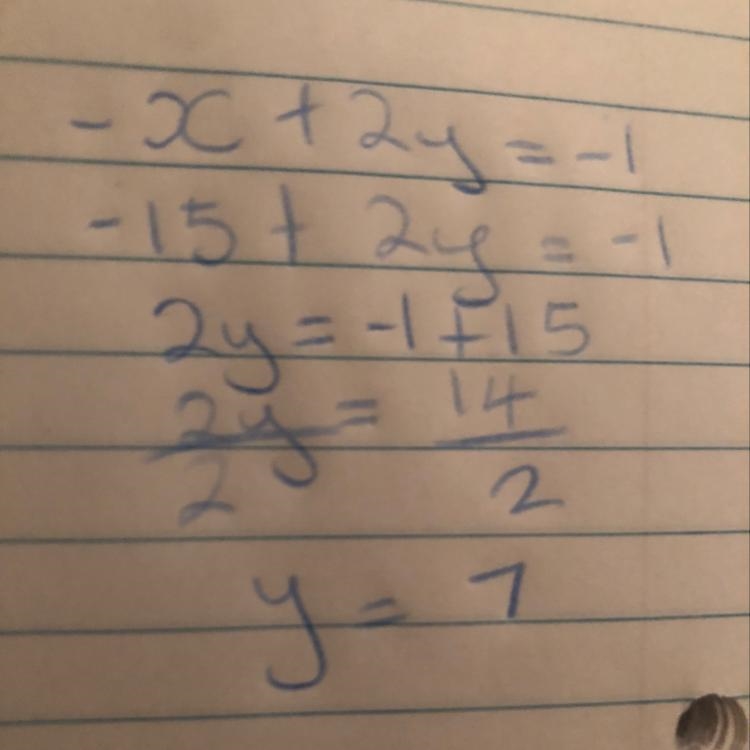 -x + 2y = -1
-15 + 2y = -1
2y = -1 + 15
2y/2 = 14/2
y = 7